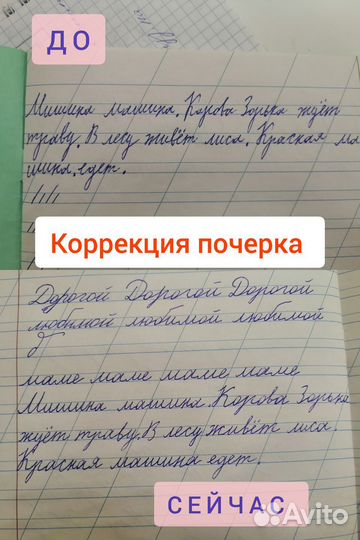 ДО
Мишина машина. Корова Зорька ждёт
траву. В лесу живёт лиса. Красная ма
шина едет.
Коррекция почерка
Дорогой Дорогой Дорогой
любимой любимой любимой
маме маме маме маме
Мишина машина. Корова Зорька
ждёт траву. В лесу живёт лиса.
Красная машина едет.
СЕЙЧАС
Avito